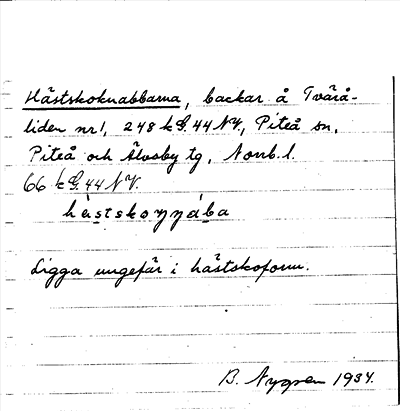 Hästskoknabbarna, backar å Tvärå-
liden nr 1, 248 k G. 44 NV, Piteå sn,
Piteå och Älvsby tg, Norrb. l.
66 k G. 44 NV.
Ligga ungefär i hästskoform.
B. Nygren 1934.